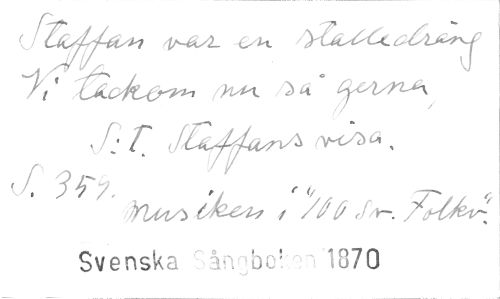 Staffan var en stalledräng
Vi tackom nu så gerna,
S:t. Staffans visa.
S. 359.
musiken i "100 Sv. Folkv."
Svenska Sångboken 1870